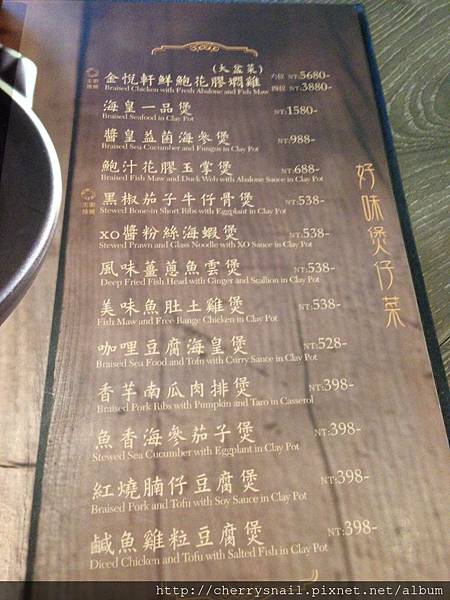 (大盆菜)
主廚推薦 金悅軒鮮鮑花膠燜雞 六位 NT:5680-
四位 NT:3880-
Braised Chicken with Fresh Abalone and Fish Maw
海皇一品煲 NT:1580-
Braised Seafood in Clay Pot
醬皇菇菌海參煲 NT:988-
Braised Sea Cucumber and Fungus in Clay Pot
鮑汁花膠玉掌煲 NT:688-
Braised Fish Maw and Duck Web with Abalone Sauce in Clay Pot
主廚推薦 黑椒茄子牛仔骨煲 NT:538-
Stewed Bone-in Short Ribs with Eggplant in Clay Pot
xo醬粉絲海蝦煲 NT:538-
Stewed Prawn and Glass Noodle with XO Sauce in Clay Pot
風味薑蔥魚雲煲 NT:538-
Deep Fried Fish Head with Ginger and Scallion in Clay Pot
美味魚肚土雞煲 NT:538-
Fish Maw and Free Range Chicken in Clay Pot
咖哩豆腐海皇煲 NT:528-
Braised Sea Food and Tofu with Curry Sauce in Clay Pot
香芋南瓜肉排煲 NT:398-
Braised Pork Ribs with Pumpkin and Taro in Casserol
魚香海參茄子煲 NT:398-
Stewed Sea Cucumber with Eggplant in Clay Pot
紅燒腩仔豆腐煲 NT:398-
Braised Pork and Tofu with Soy Sauce in Clay Pot
鹹魚雞粒豆腐煲 NT:398-
Diced Chicken and Tofu with Salted Fish in Clay Pot
好味煲仔菜
http://cherrysnail.pixnet.net/album